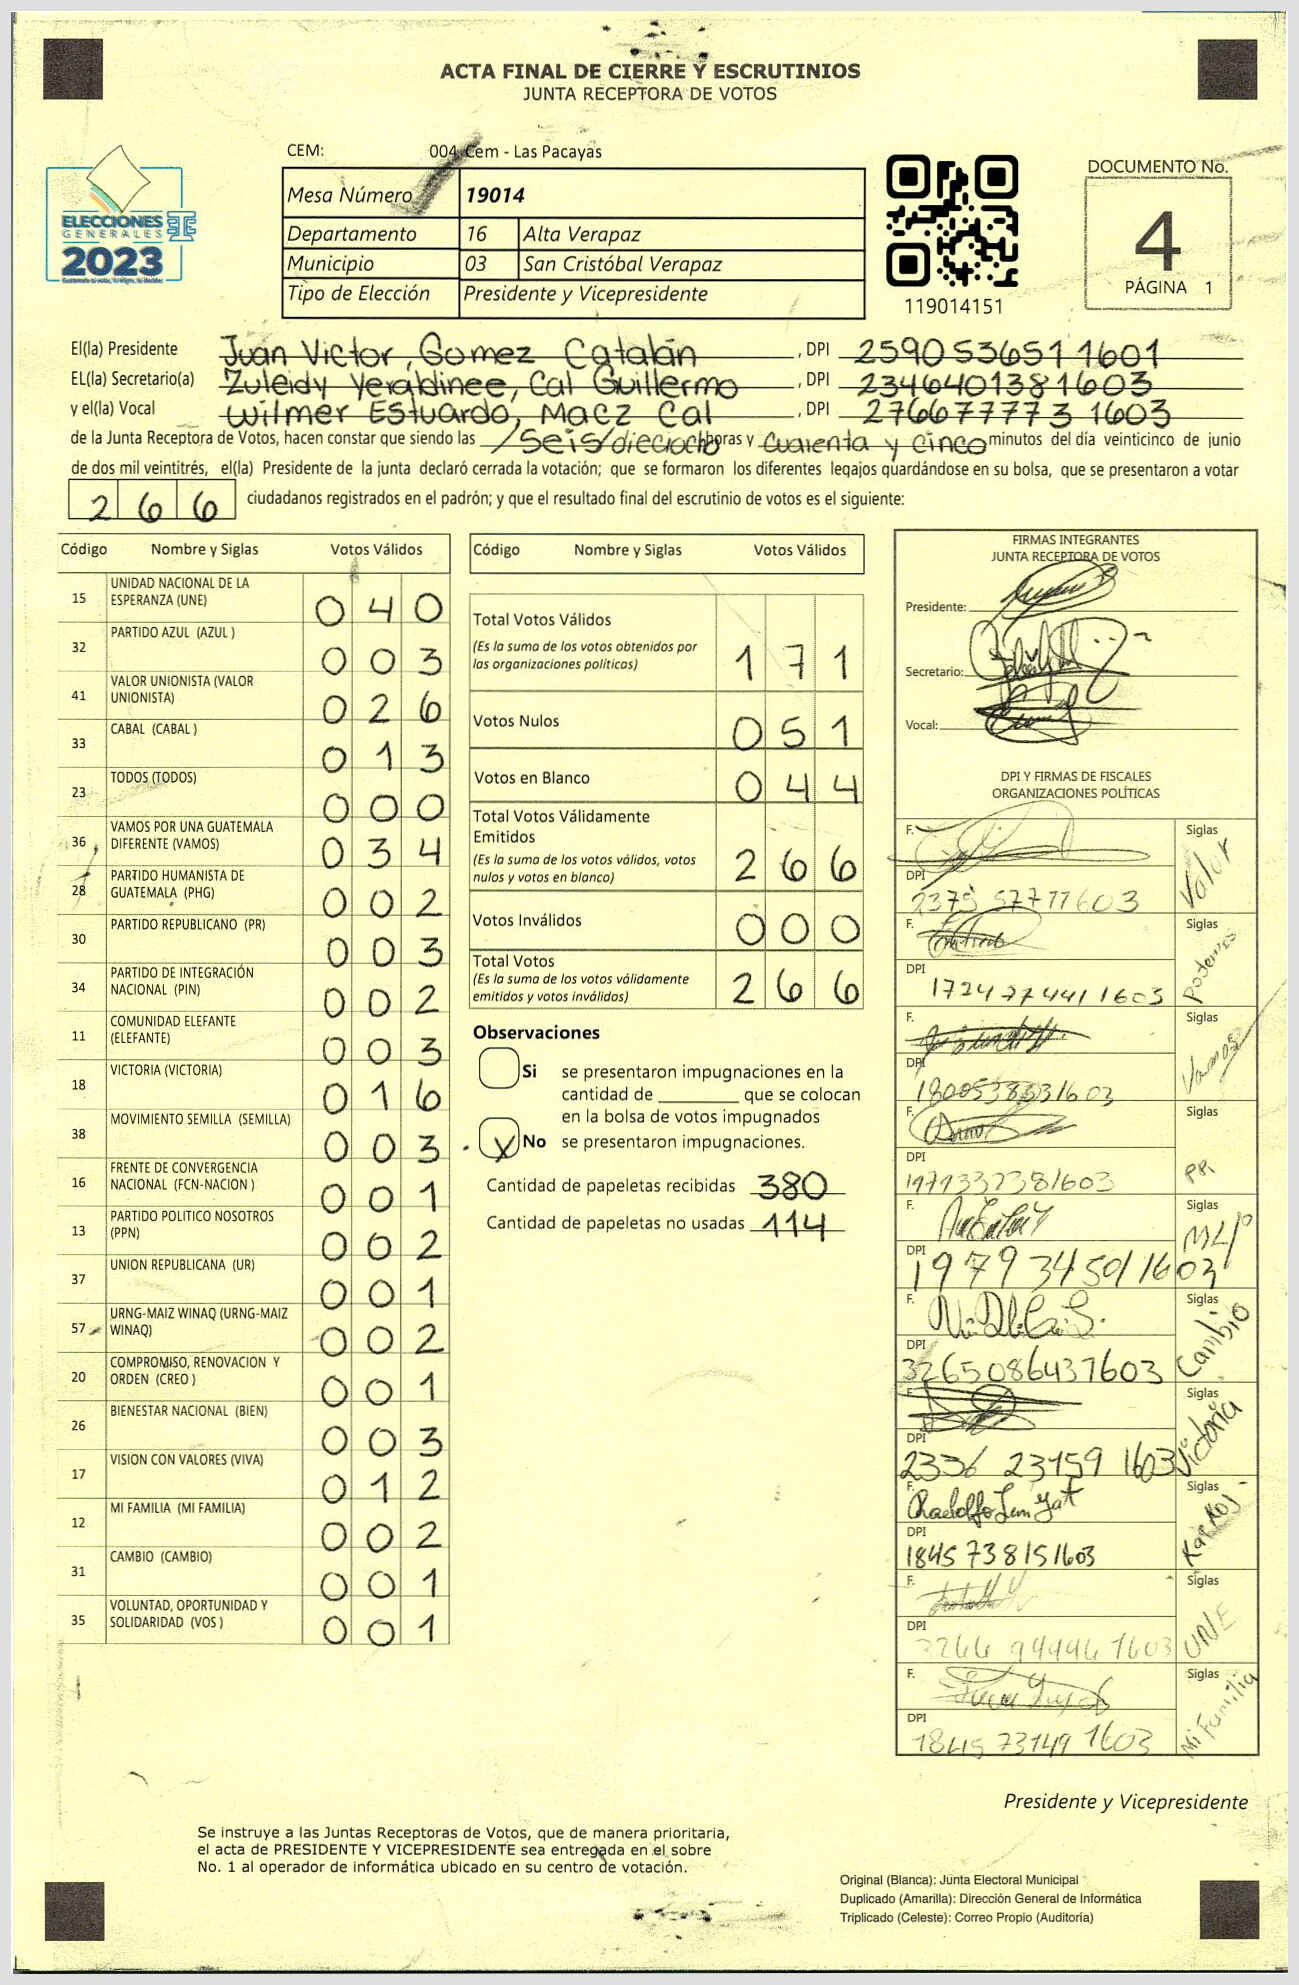 ACTA FINAL DE CIERRE Y ESCRUTINIOS
JUNTA RECEPTORA DE VOTOS
CEM: 004 Cem - Las Pacayas
Mesa Número 19014
Departamento 16 Alta Verapaz
Municipio 03 San Cristóbal Verapaz
Tipo de Elección Presidente y Vicepresidente
ELECCIONES
GENERALES
2023
119014151
DOCUMENTO No.
4
PÁGINA 1
El(la) Presidente Juan Victor, Gomez Catalán, DPI 2590536511601
EL(la) Secretario(a) Zuleidy Yeraldinee, Cal Guillermo, DPI 2346401381603
y el(la) Vocal Wilmer Estuardo, Macz Cal, DPI 2766777731603
de la Junta Receptora de Votos, hacen constar que siendo las /seis/dieciocho horas y cuarenta y cinco minutos del día veinticinco de junio
de dos mil veintitrés, el(la) Presidente de la junta declaró cerrada la votación; que se formaron los diferentes legajos guardándose en su bolsa, que se presentaron a votar
266 ciudadanos registrados en el padrón; y que el resultado final del escrutinio de votos es el siguiente:
Código Nombre y Siglas Votos Válidos
15 UNIDAD NACIONAL DE LA ESPERANZA (UNE) 040
32 PARTIDO AZUL (AZUL ) 003
41 VALOR UNIONISTA (VALOR UNIONISTA) 026
33 CABAL (CABAL ) 013
23 TODOS (TODOS) 000
36 VAMOS POR UNA GUATEMALA DIFERENTE (VAMOS) 034
28 PARTIDO HUMANISTA DE GUATEMALA (PHG) 002
30 PARTIDO REPUBLICANO (PR) 003
34 PARTIDO DE INTEGRACIÓN NACIONAL (PIN) 002
11 COMUNIDAD ELEFANTE (ELEFANTE) 003
18 VICTORIA (VICTORIA) 016
38 MOVIMIENTO SEMILLA (SEMILLA) 003
16 FRENTE DE CONVERGENCIA NACIONAL (FCN-NACION ) 001
13 PARTIDO POLITICO NOSOTROS (PPN) 002
37 UNION REPUBLICANA (UR) 001
57 URNG-MAIZ WINAQ (URNG-MAIZ WINAQ) 002
20 COMPROMISO, RENOVACION Y ORDEN (CREO ) 001
26 BIENESTAR NACIONAL (BIEN) 003
17 VISION CON VALORES (VIVA) 012
12 MI FAMILIA (MI FAMILIA) 002
31 CAMBIO (CAMBIO) 001
35 VOLUNTAD, OPORTUNIDAD Y SOLIDARIDAD (VOS ) 001
Código Nombre y Siglas Votos Válidos
Total Votos Válidos
(Es la suma de los votos obtenidos por las organizaciones políticas) 171
Votos Nulos 051
Votos en Blanco 044
Total Votos Válidamente Emitidos
(Es la suma de los votos válidos, votos nulos y votos en blanco) 266
Votos Inválidos 000
Total Votos
(Es la suma de los votos válidamente emitidos y votos inválidos) 266
Observaciones
Si se presentaron impugnaciones en la
cantidad de ________ que se colocan
en la bolsa de votos impugnados
X No se presentaron impugnaciones.
Cantidad de papeletas recibidas 380
Cantidad de papeletas no usadas 114
FIRMAS INTEGRANTES
JUNTA RECEPTORA DE VOTOS
Presidente:
Secretario:
Vocal:
DPI Y FIRMAS DE FISCALES
ORGANIZACIONES POLÍTICAS
F. Siglas Valor
DPI
F. Siglas Podemos
DPI 1724774411603
F. Siglas Vamos
DPI
F. Siglas PPi
DPI 1971332381603
F. Siglas MLP
DPI 1979345011603
F. Siglas Cambio
DPI 3265086437603
F. Siglas Victoria
DPI 2336 23159 1603
F. Siglas
DPI 1845738151603
F. Siglas UNE
DPI
F. Siglas Mi Familia
DPI 1845 73149 1603
Presidente y Vicepresidente
Se instruye a las Juntas Receptoras de Votos, que de manera prioritaria,
el acta de PRESIDENTE Y VICEPRESIDENTE sea entregada en el sobre
No. 1 al operador de informática ubicado en su centro de votación.
Original (Blanca): Junta Electoral Municipal
Duplicado (Amarilla): Dirección General de Informática
Triplicado (Celeste): Correo Propio (Auditoría)